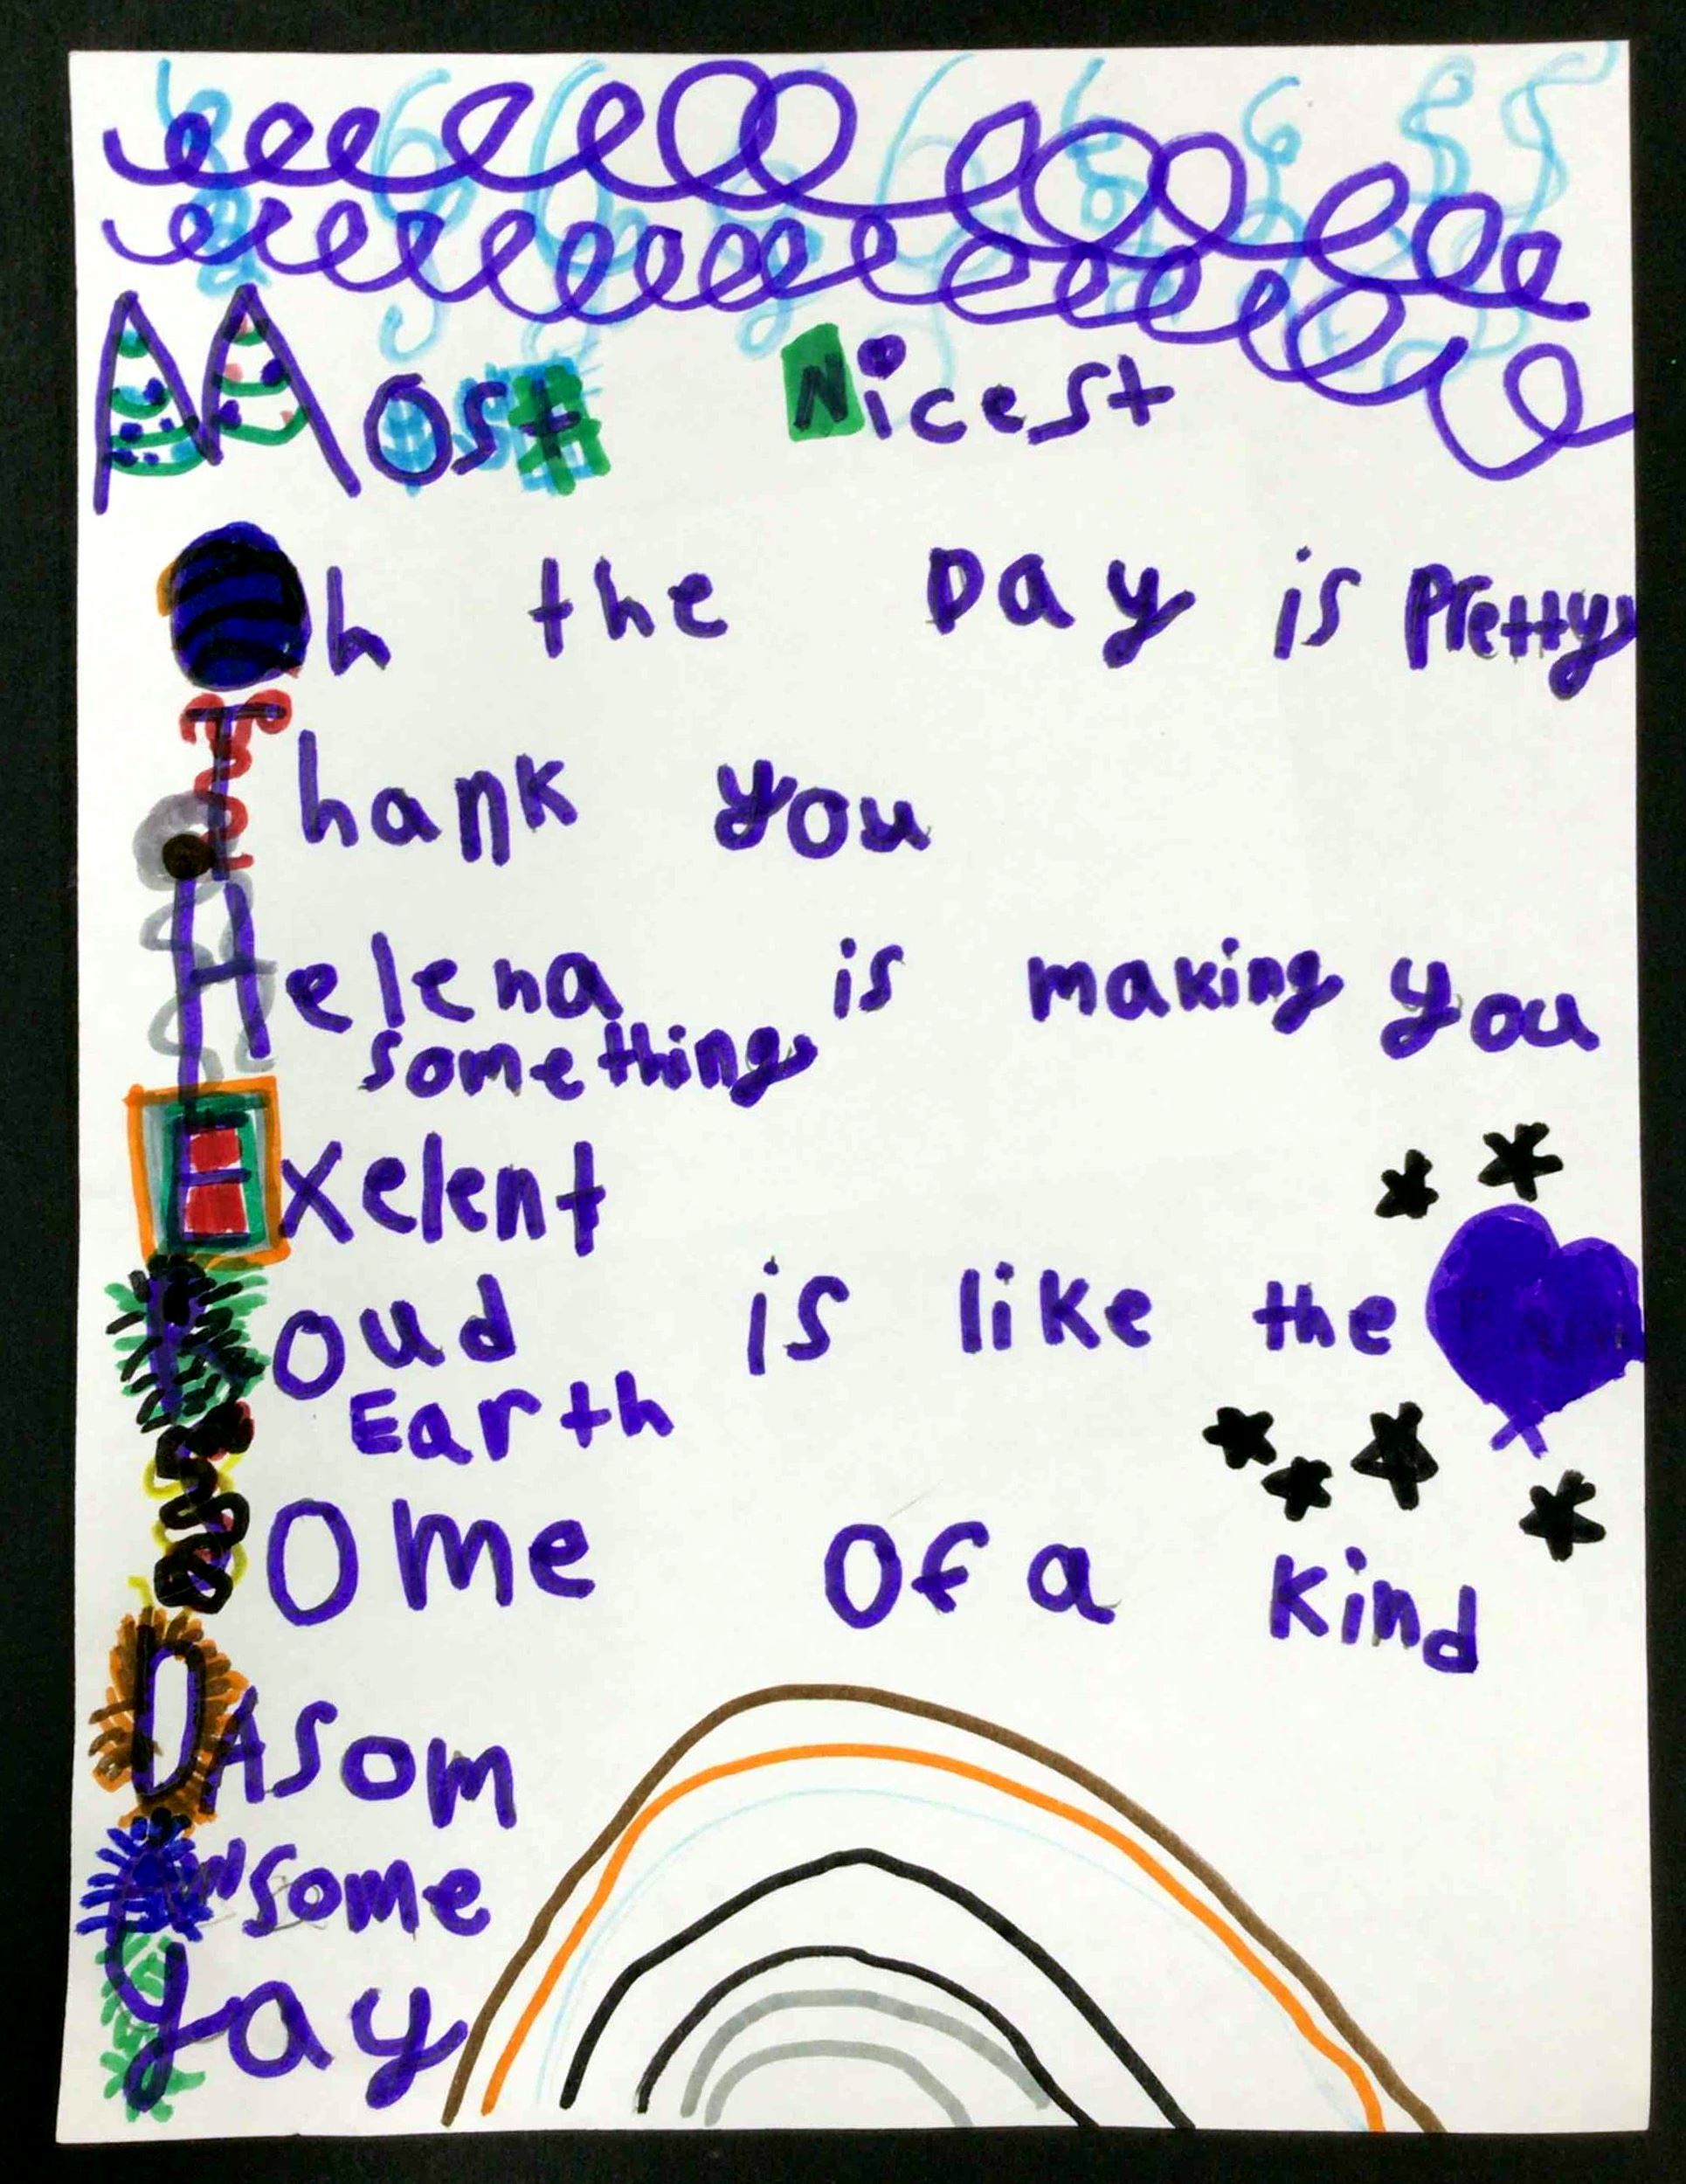 Most Nicest
Oh the Day is Pretty
Thank you
Helena is making you
something
Exelent
Roud is like the
Earth
SOme Of a Kind
DAsom
Awsome
Yay